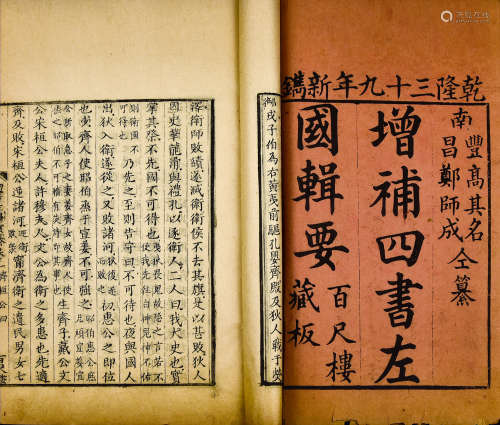 乾隆三十九年新鐫
南豐高其名
昌鄭師成
仝纂
增補四書左
國輯要
百尺樓
藏板
御戎子伯為右黃夷前驅孔嬰齊殿及狄人戰于熒
澤衛師敗績遂滅衛衛侯不去其旗是以甚敗狄人
囚史華龍滑與禮孔以逐衛人二人曰我大史也實
掌其祭不先國不可得也
乃先之至則告守曰不可待也夜與國人
出狄入衛遂從之又敗諸河
初惠公之即位
也少齊人使昭伯烝于宣姜不可強之
生齊子戴公文
公宋桓公夫人許穆夫人文公為衛之多患也先適
齊及敗宋桓公逆諸河
宵濟衛之遺民男女七